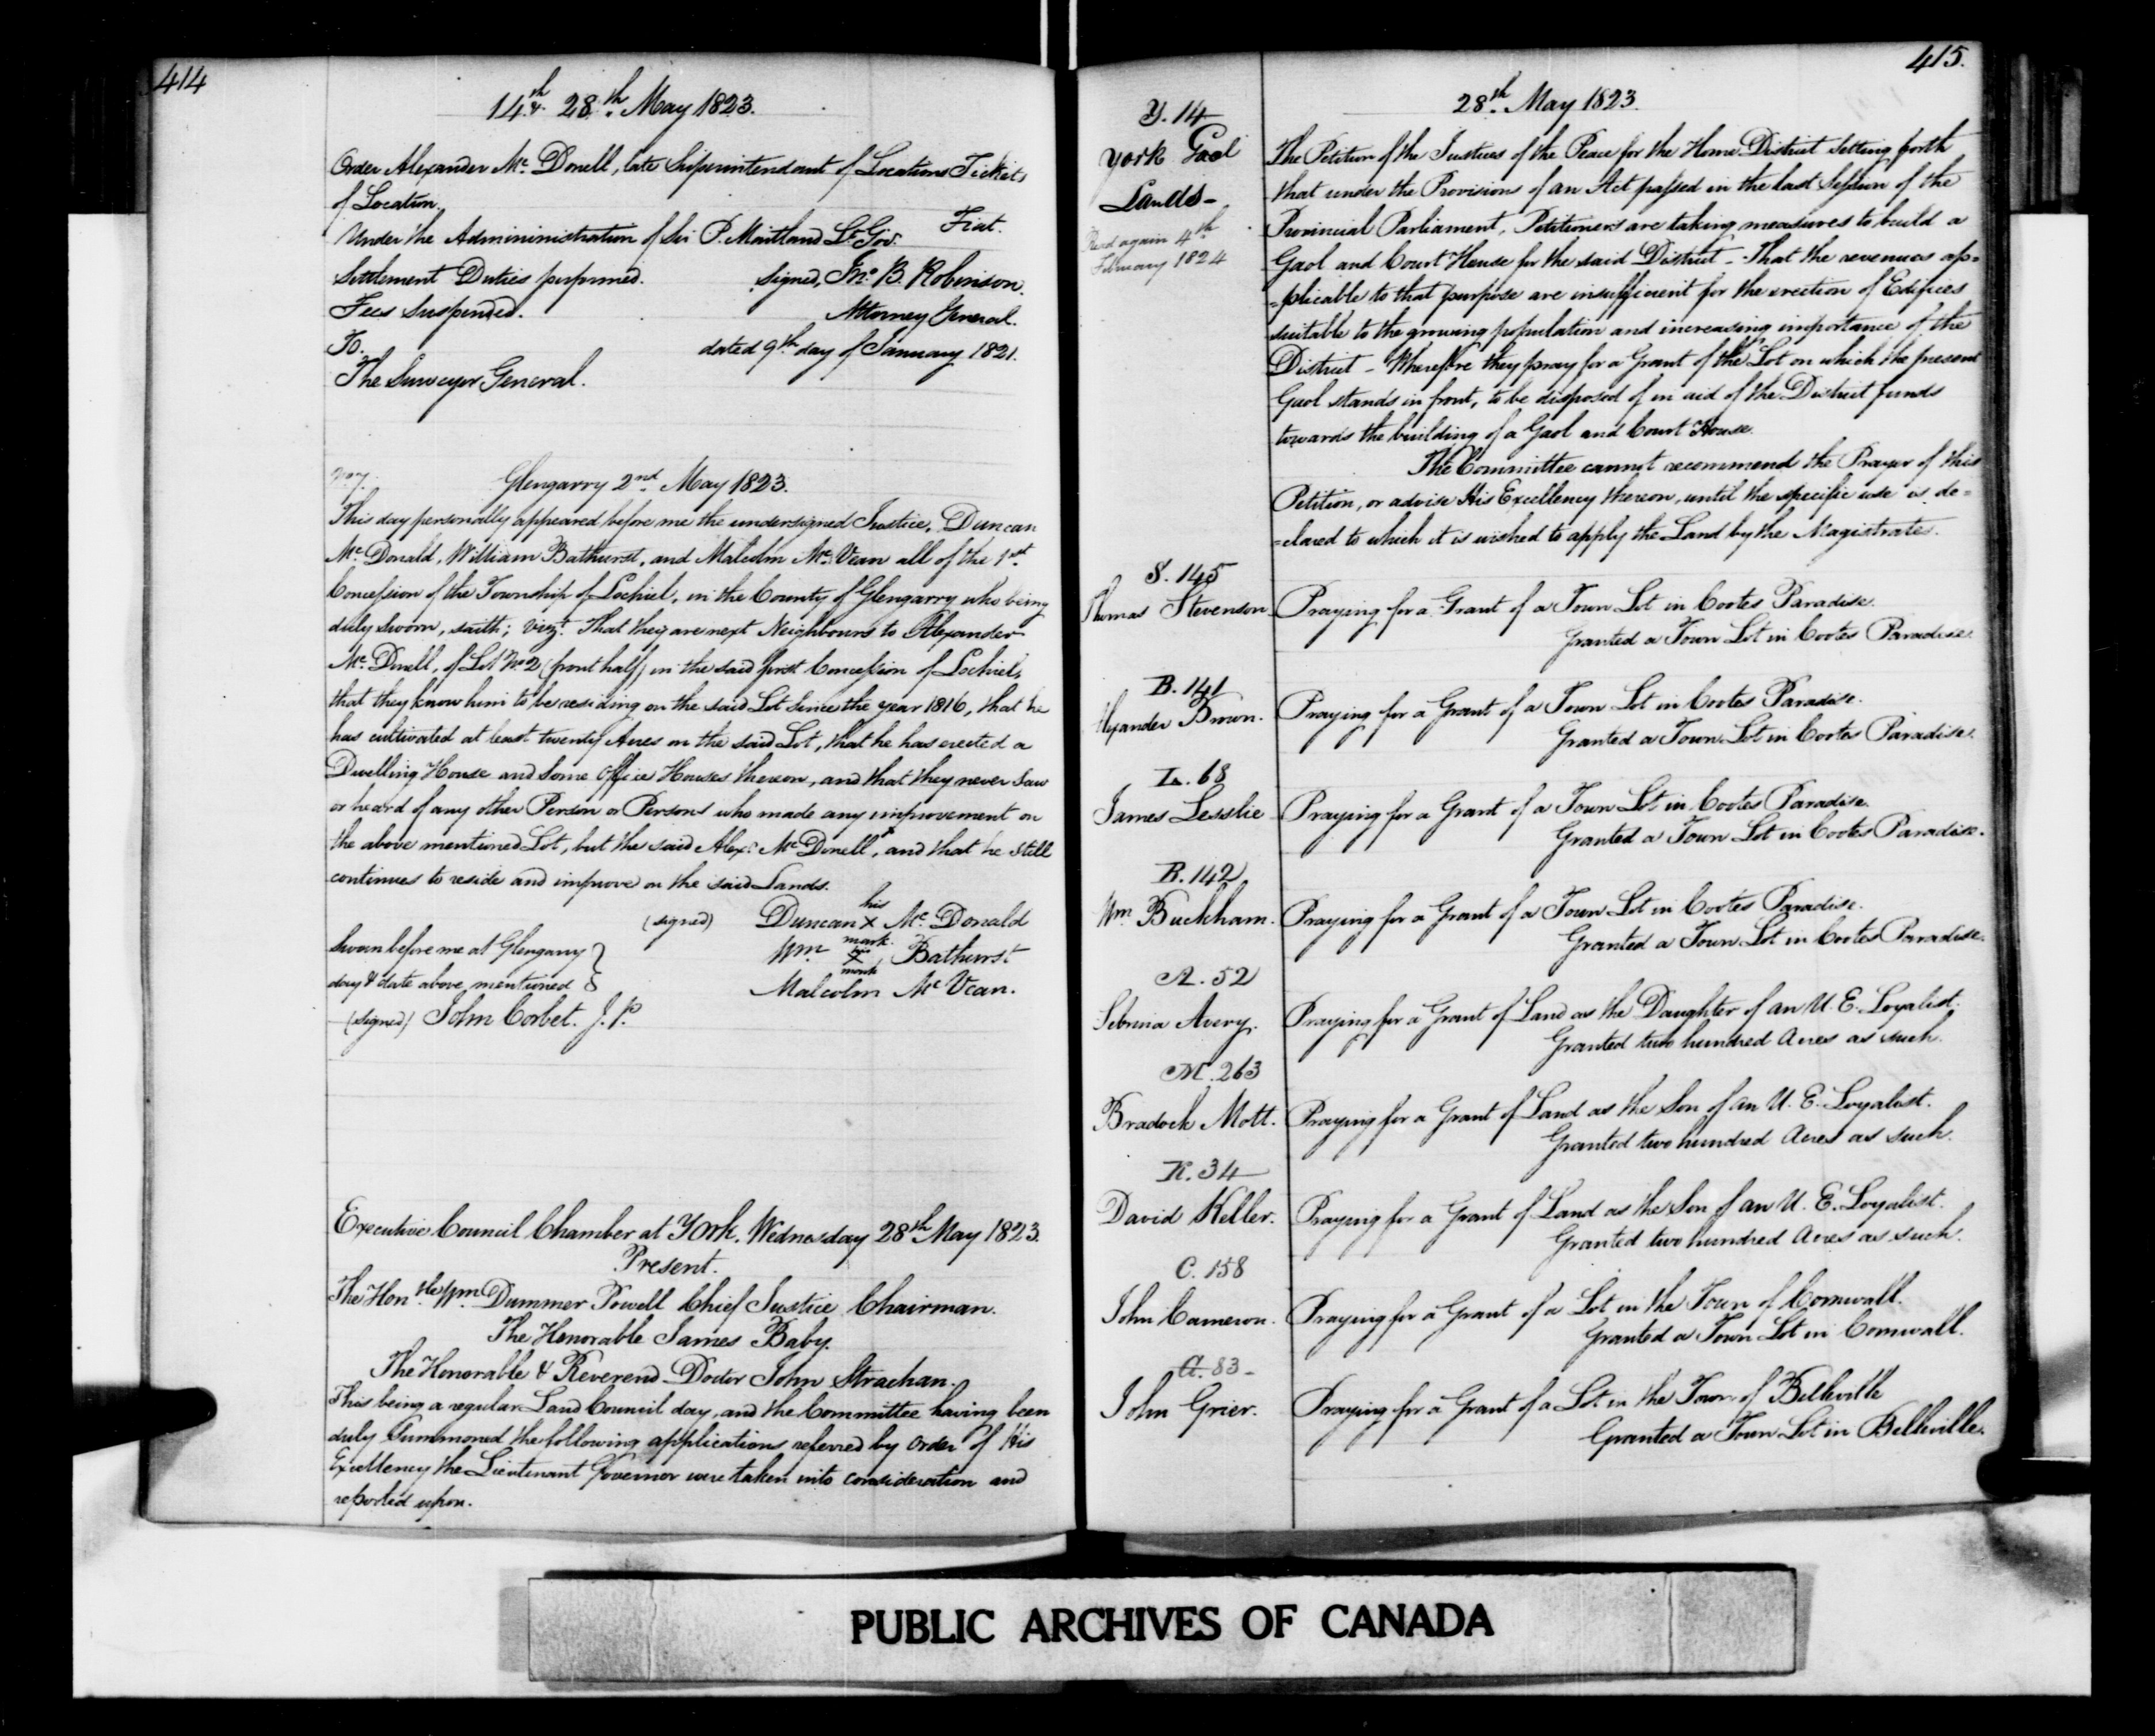 414
14th & 28th May 1823.
Order Alexander Mc Donell, late Superintendant of Locations Tickets
of Location.
Under the Admininistration of Sir P. Maitland Lt Gov. Fiat.
Settlement Duties performed. Signed, Jno B. Robinson.
Fees Suspended. Attorney General.
To. dated 9th day of January 1821.
The Surveyor General.
Glengarry 2nd May 1823.
This day personally appeared before me the undersigned Justice, Duncan
Mc Donald, William Bathurst, and Malcolm Mc Vean all of the 1st
Concession of the Township of Lochiel, in the County of Glengarry who being
duly sworn, saith; Vizt. That they are next Neighbours to Alexander
Mc Donell, of Lot No 2 (front half) in the said first Concession of Lochiel,
that they know him to be residing on the said Lot since the year 1816, that he
has cultivated at least twenty Acres on the said Lot, that he has erected a
Dwelling House and some Office Houses thereon, and that they never saw
or heard of any other Person or Persons who made any improvement on
the above mentioned Lot, but the said Alexr Mc Donell, and that he still
continues to reside and improve on the said Lands.
his
(signed) Duncan X Mc Donald
mark.
Sworn before me at Glengarry } Wm his X mark Bathurst
day & date above mentioned } Malcolm Mc Vean.
(signed) John Corbet. J. P.
Executive Council Chamber at York, Wednesday 28th May 1823.
Present.
The Honble Wm Dummer Powell Chief Justice Chairman.
The Honorable James Baby.
The Honorable & Reverend Doctor John Strachan.
This being a regular Land Council day, and the Committee having been
duly Summoned the following applications referred by order of His
Excellency the Lieutenant Governor were taken into consideration and
reported upon.
415.
28th May 1823.
Y. 14
York Gaol
Lands-
Read again 4th
February 1824
The Petition of the Justices of the Peace for the Home District setting forth
that under the Provisions of an Act passed in the last Session of the
Provincial Parliament, Petitioners are taking measures to build a
Gaol and Court House for the said District - That the revenues ap=
=plicable to that purpose are insufficient for the erection of Edifices
suitable to the growing population and increasing importance of the
District - Wherefore they pray for a Grant of the Lot on which the present
Gaol stands in front, to be disposed of in aid of the District funds
towards the building of a Gaol and Court House.
The Committee cannot recommend the Prayer of this
Petition, or advise His Excellency thereon, until the specific use is de=
=clared to which it is wished to apply the Land by the Magistrates.
S. 145
Thomas Stevenson Praying for a Grant of a Town Lot in Cootes Paradise.
Granted a Town Lot in Cootes Paradise.
B. 141
Alexander Brown. Praying for a Grant of a Town Lot in Cootes Paradise.
Granted a Town Lot in Cootes Paradise.
L. 68
James Lesslie Praying for a Grant of a Town Lot in Cootes Paradise.
Granted a Town Lot in Cootes Paradise.
B. 142.
Wm Buckham. Praying for a Grant of a Town Lot in Cootes Paradise.
Granted a Town Lot in Cootes Paradise.
A. 52
Sebrina Avery. Praying for a Grant of Land as the Daughter of an U. E. Loyalist.
Granted two hundred Acres as such.
M. 263
Bradock Mott. Praying for a Grant of Land as the Son of an U. E. Loyalist.
Granted two hundred Acres as such.
K. 34
David Keller. Praying for a Grant of Land as the Son of an U. E. Loyalist.
Granted two hundred Acres as such.
C. 158
John Cameron. Praying for a Grant of a Lot in the Town of Cornwall.
Granted a Town Lot in Cornwall.
G. 83-
John Grier. Praying for a Grant of a Lot in the Town of Belleville
Granted a Town Lot in Belleville.
PUBLIC ARCHIVES OF CANADA